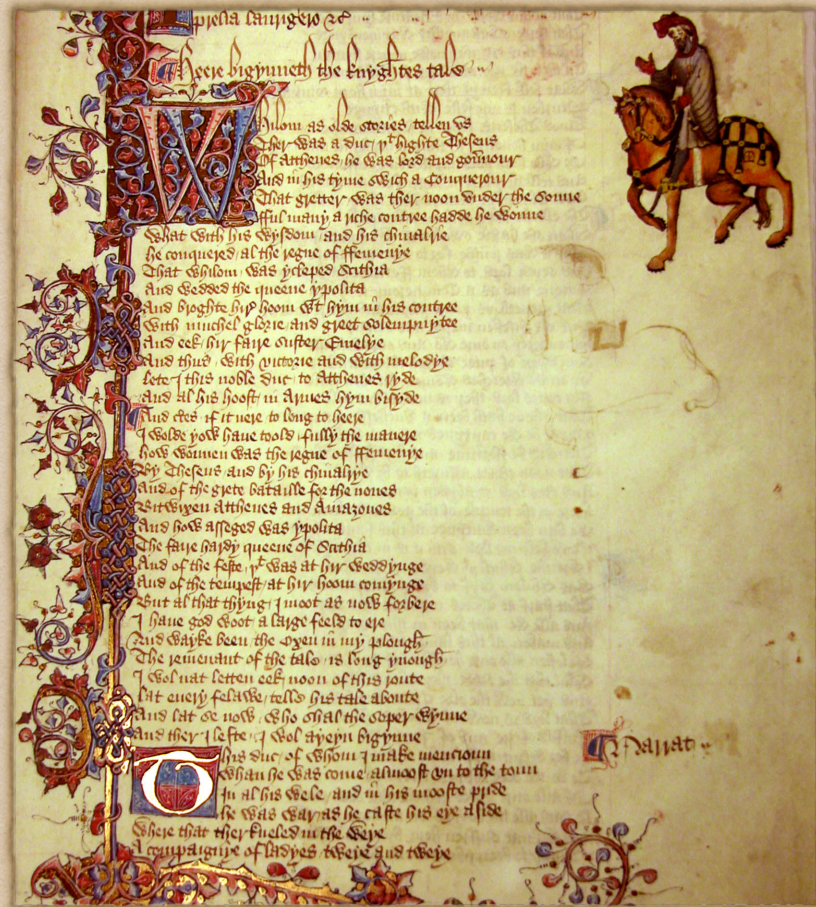 presia laurigero &c
Heere bigynneth the knyghtes tale
Whilom as olde stories tellen vs
Ther was a duc þt highte Theseus
Of Atthenes he was lord and gouernour
And in his tyme swich a Conquerour
That gretter was ther noon vnder the sonne
fful many a riche contree hadde he wonne
What with his wysdom and his chiualrie
he conquered al the regne of ffemenye
That whilom was ycleped Scithia
And wedded the queene ypolita
And broghte hir hoom wt hym in his contree
With muchel glorie and greet solempnytee
And eek hir faire suster Emelye
And thus with victorie and with melodye
lete I this noble duc to Atthenes ryde
And al his hoost in Armes hym bisyde
And certes if it nere to long to heere
I wolde yow haue toold fully the manere
how wonnen was the regne of ffemenye
By Theseus and by his chiualrye
And of the grete bataille for the nones
Bitwixen Atthenes and Amazones
And how asseged was ypolita
The faire hardy queene of Scithia
And of the feste þt was at hir weddynge
And of the tempest at hir hoom comynge
But al that thyng I moot as now forbere
I haue god woot a large feeld to ere
And wayke been the Oxen in my plough
The remenant of the tale is long ynough
I wol nat letten eek noon of this route
lat euery felawe telle his tale aboute
And lat se now who shal the soper wynne
And ther I lefte I wol ayeyn bigynne
This duc of whom I make mencioun
Whan he was come almoost vn to the toun
In al his wele and in his mooste pride
he was war as he caste his eye aside
Where that ther kneled in the weye
A compaignye of ladyes tweye and tweye
Narrat